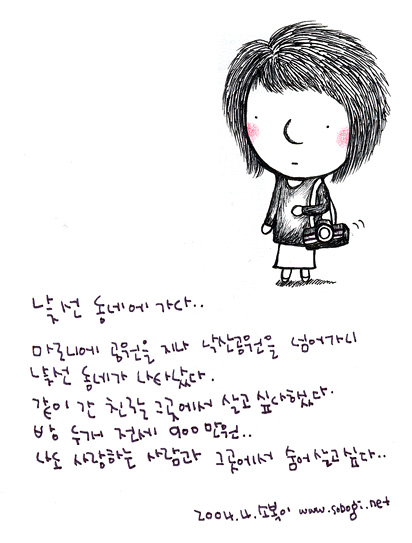 낯선 동네에 가다..
마로니에 공원을 지나 낙산공원을 넘어가니
낯선 동네가 나타났다.
같이 간 친구는 그곳에서 살고 싶다했다.
방 두개 전세 900만원..
나도 사랑하는 사람과 그곳에서 숨어 살고 싶다..
2004.4.소복이 www.sobogi.net